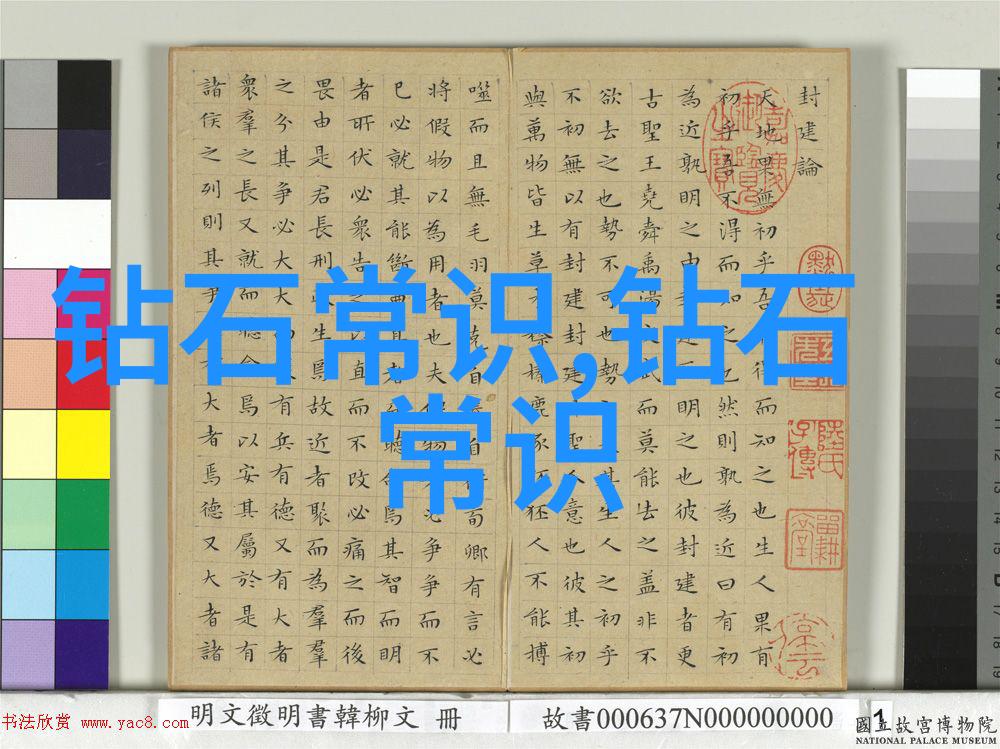 封建論
天地果無初乎吾不得而知之也生人果有
初乎吾不得而知之也然則孰為近曰有初
為近孰明之由封建而明之也彼封建者更
古聖王堯舜禹湯文武而莫能去之蓋非不
欲去之也勢不可也勢之來其生人之初乎
不初無以有封建封建非聖人意也彼其初
與萬物皆生草木榛榛鹿豕狉狉人不能搏
噬而且無毛羽莫克自奉自衛荀卿有言必
將假物以為用者也夫假物者必爭爭而不
已必就其能斷曲直者而聽命焉其智而明
者所伏必衆告之以直而不改必痛之而後
畏由是君長刑政生焉故近者聚而為羣
之分其爭必大大而後有兵有德又有大者
衆羣之長又就而聽命焉以安其屬於是有
諸侯之列則其爭又有大者焉德又大者諸
嘉慶御覽之寶
钻石常识,钻石
常识
明文徵明書韓柳文 冊
故書000637N000000000
1
书法欣赏 www.yac8.com
國立故宮博物院
NATIONAL PALACE MUSEUM